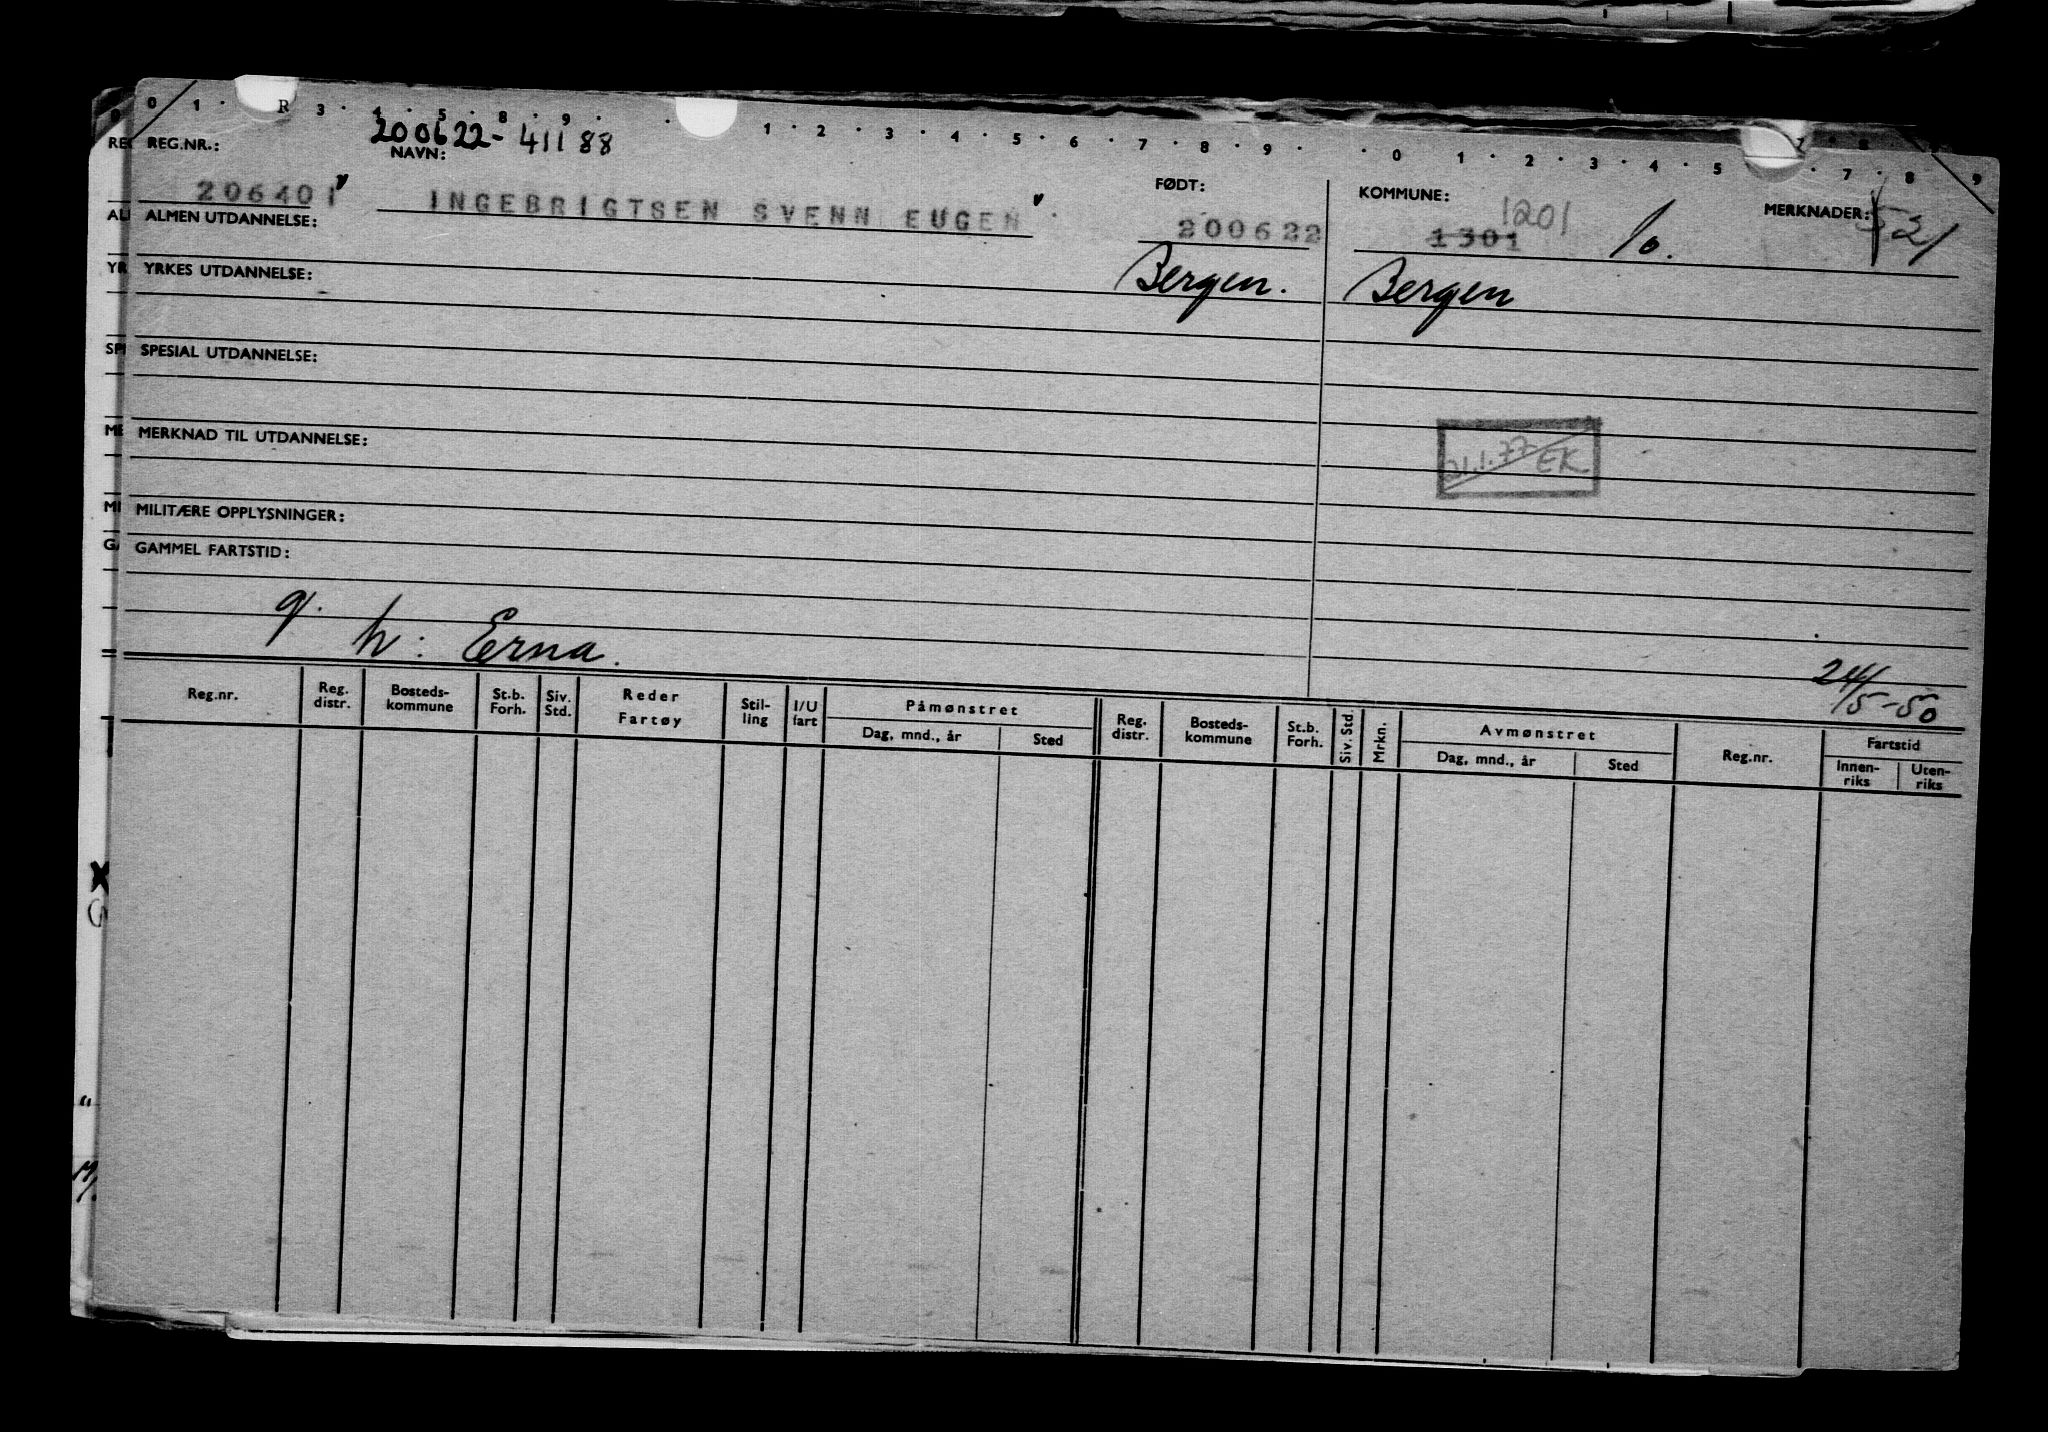 0 1 · R 3 · 4 · 5 · 8 · 9 · · 1 · 2 · 3 · 4 · 5 · 6 · 7 · 8 · 9 · · 0 1 · 2 · 3 · 4 · 5 · 7 · 8 9
200622-41188
REG.NR.: NAVN: FØDT: KOMMUNE: MERKNADER:
206401 INGEBRIGTSEN SVENN EUGEN 200622 1301 1201
ALMEN UTDANNELSE:
Bergen. Bergen
YRKES UTDANNELSE:
SPESIAL UTDANNELSE:
MERKNAD TIL UTDANNELSE:
21.1.77 EK
MILITÆRE OPPLYSNINGER:
GAMMEL FARTSTID:
g. h: Erna.
24/5-50
Reg.nr. Reg. distr. Bosteds-kommune St.b. Forh. Siv. Std. Reder Fartøy Stil-ling I/U fart Påmønstret Reg. distr. Bosteds-kommune St.b. Forh. Siv. Std. Mrkn. Avmønstret Reg.nr. Fartstid
Dag, mnd., år Sted Dag, mnd., år Sted Innen-riks Uten-riks